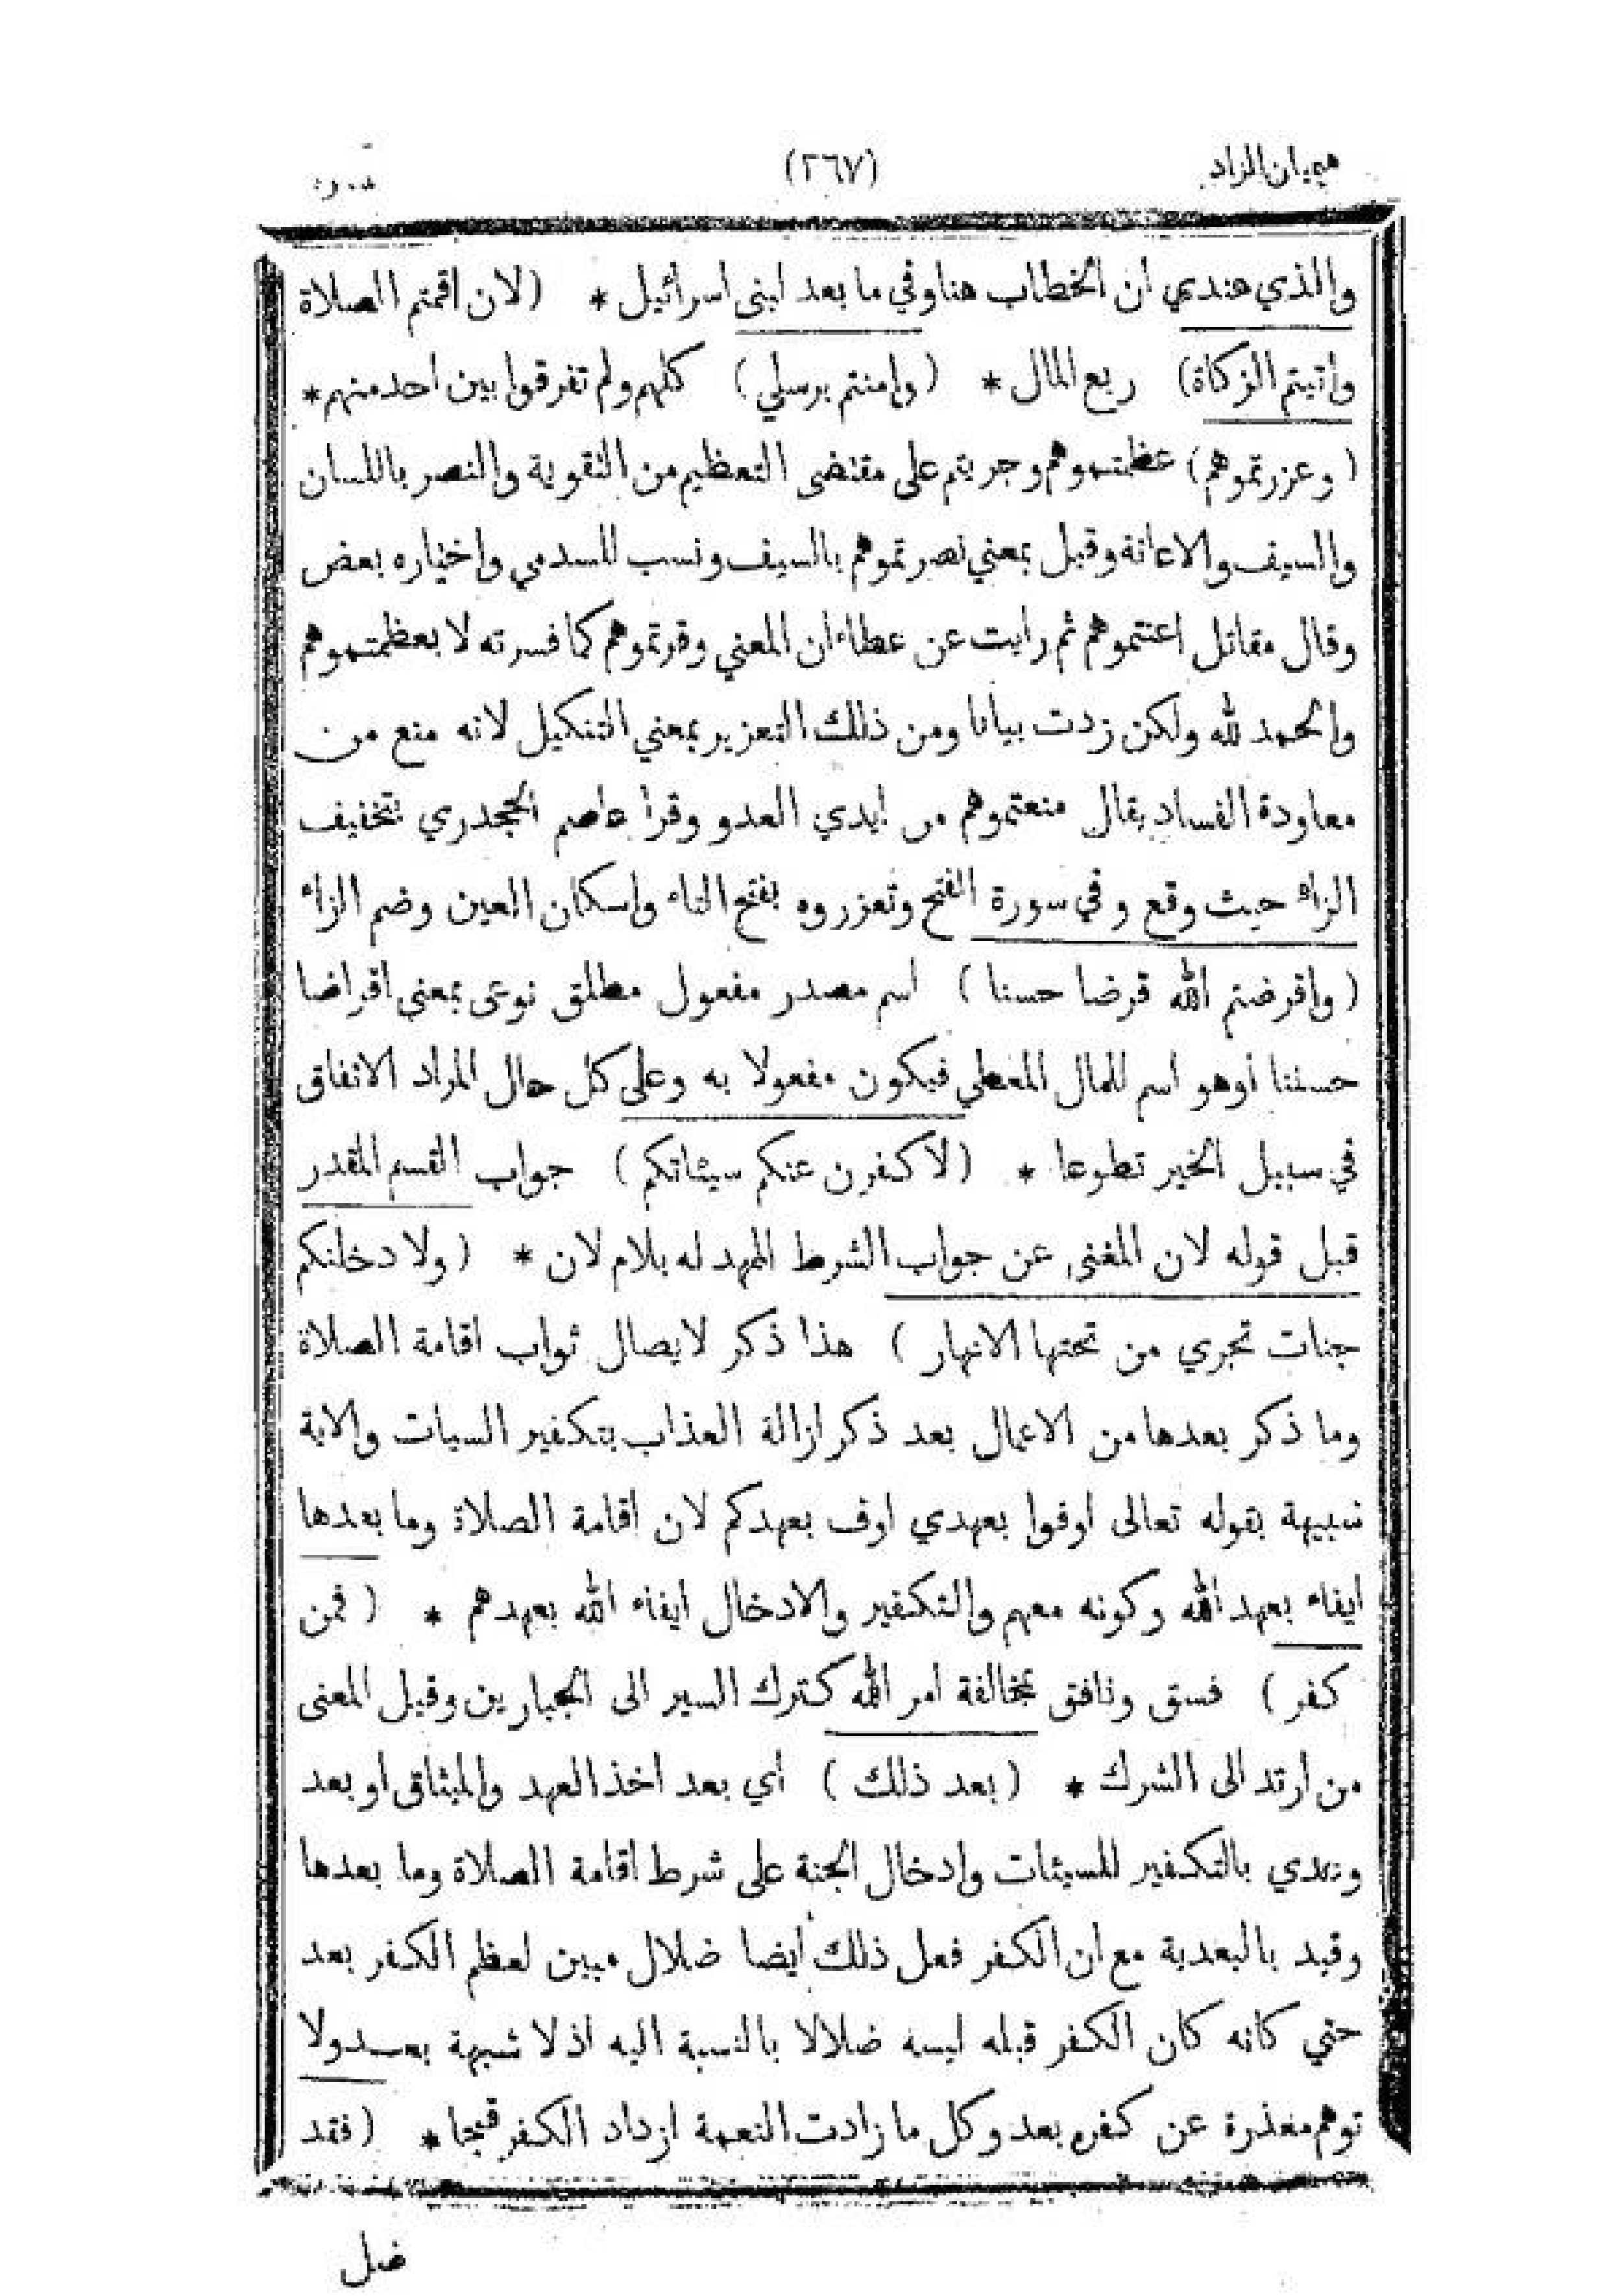 هيميان الزاد (٢٦٧)
والذي عندي ان الخطاب هنا وفي ما بعد لبنى اسرائيل * (لان اقمتم الصلاة
وأتيتم الزكاة) ربع المال * (وامنتم برسلي) كلهم ولم تفرقوا بين احد منهم *
(وعزرتموهم) عظمتموهم وجريتم على مقتضى التعظيم من التقوية والنصر باللسان
والسيف والاعانة وقيل بمعني نصرتموهم بالسيف ونسب للسدي واختياره بعض
وقال مقاتل اعنتموهم ثم رايت عن عطاء ان المعني وقرتموهم كما فسرته لا بعظمتموهم
والحمد لله ولكن زدت بيانا ومن ذلك التعزير بمعني التنكيل لانه منع من
معاودة الفساد يقال منعتموهم من ايدي العدو وقرأ عاصم الجحدري بتخفيف
الزاء حيث وقع وفي سورة الفتح وتعزروه بفتح التاء واسكان العين وضم الزاء
(واقرضتم الله قرضا حسنا) اسم مصدر مفعول مطلق نوعى بمعنى اقراضا
حسنا أوهو اسم للمال المعطي فيكون مفعولا به وعلى كل حال المراد الانفاق
في سبيل الخير تطوعا * (لأكفرن عنكم سيئاتكم) جواب القسم المقدر
قبل قوله لان المغنى عن جواب الشرط الممهد له بلام لان * (ولادخلنكم
جنات تجري من تحتها الانهار) هذا ذكر لايصال ثواب اقامة الصلاة
وما ذكر بعدها من الاعمال بعد ذكر ازالة العذاب بتكفير السيات والاية
شبيهة بقوله تعالى اوفوا بعهدي اوف بعهدكم لان اقامة الصلاة وما بعدها
ايفاء بعهد الله وكونه معهم والتكفير والادخال ايفاء الله بعهدهم * (فمن
كفر) فسق ونافق بمخالفة امر الله كترك السير الى الجبارين وقيل المعنى
من ارتد الى الشرك * (بعد ذلك) أي بعد اخذ العهد والميثاق او بعد
وعدي بالتكفير للسيئات وادخال الجنة على شرط اقامة الصلاة وما بعدها
وقيد بالبعدية مع ان الكفر فعل ذلك أيضا ضلال مبين لعظم الكفر بعد
حتي كانه كان الكفر قبله ليسه ضلالا بالنسبة اليه اذ لا شبهة بعد ولا
توهم معذرة عن كفره بعد وكل ما زادت النعمة ازداد الكفر قبحا * (فقد
ضل